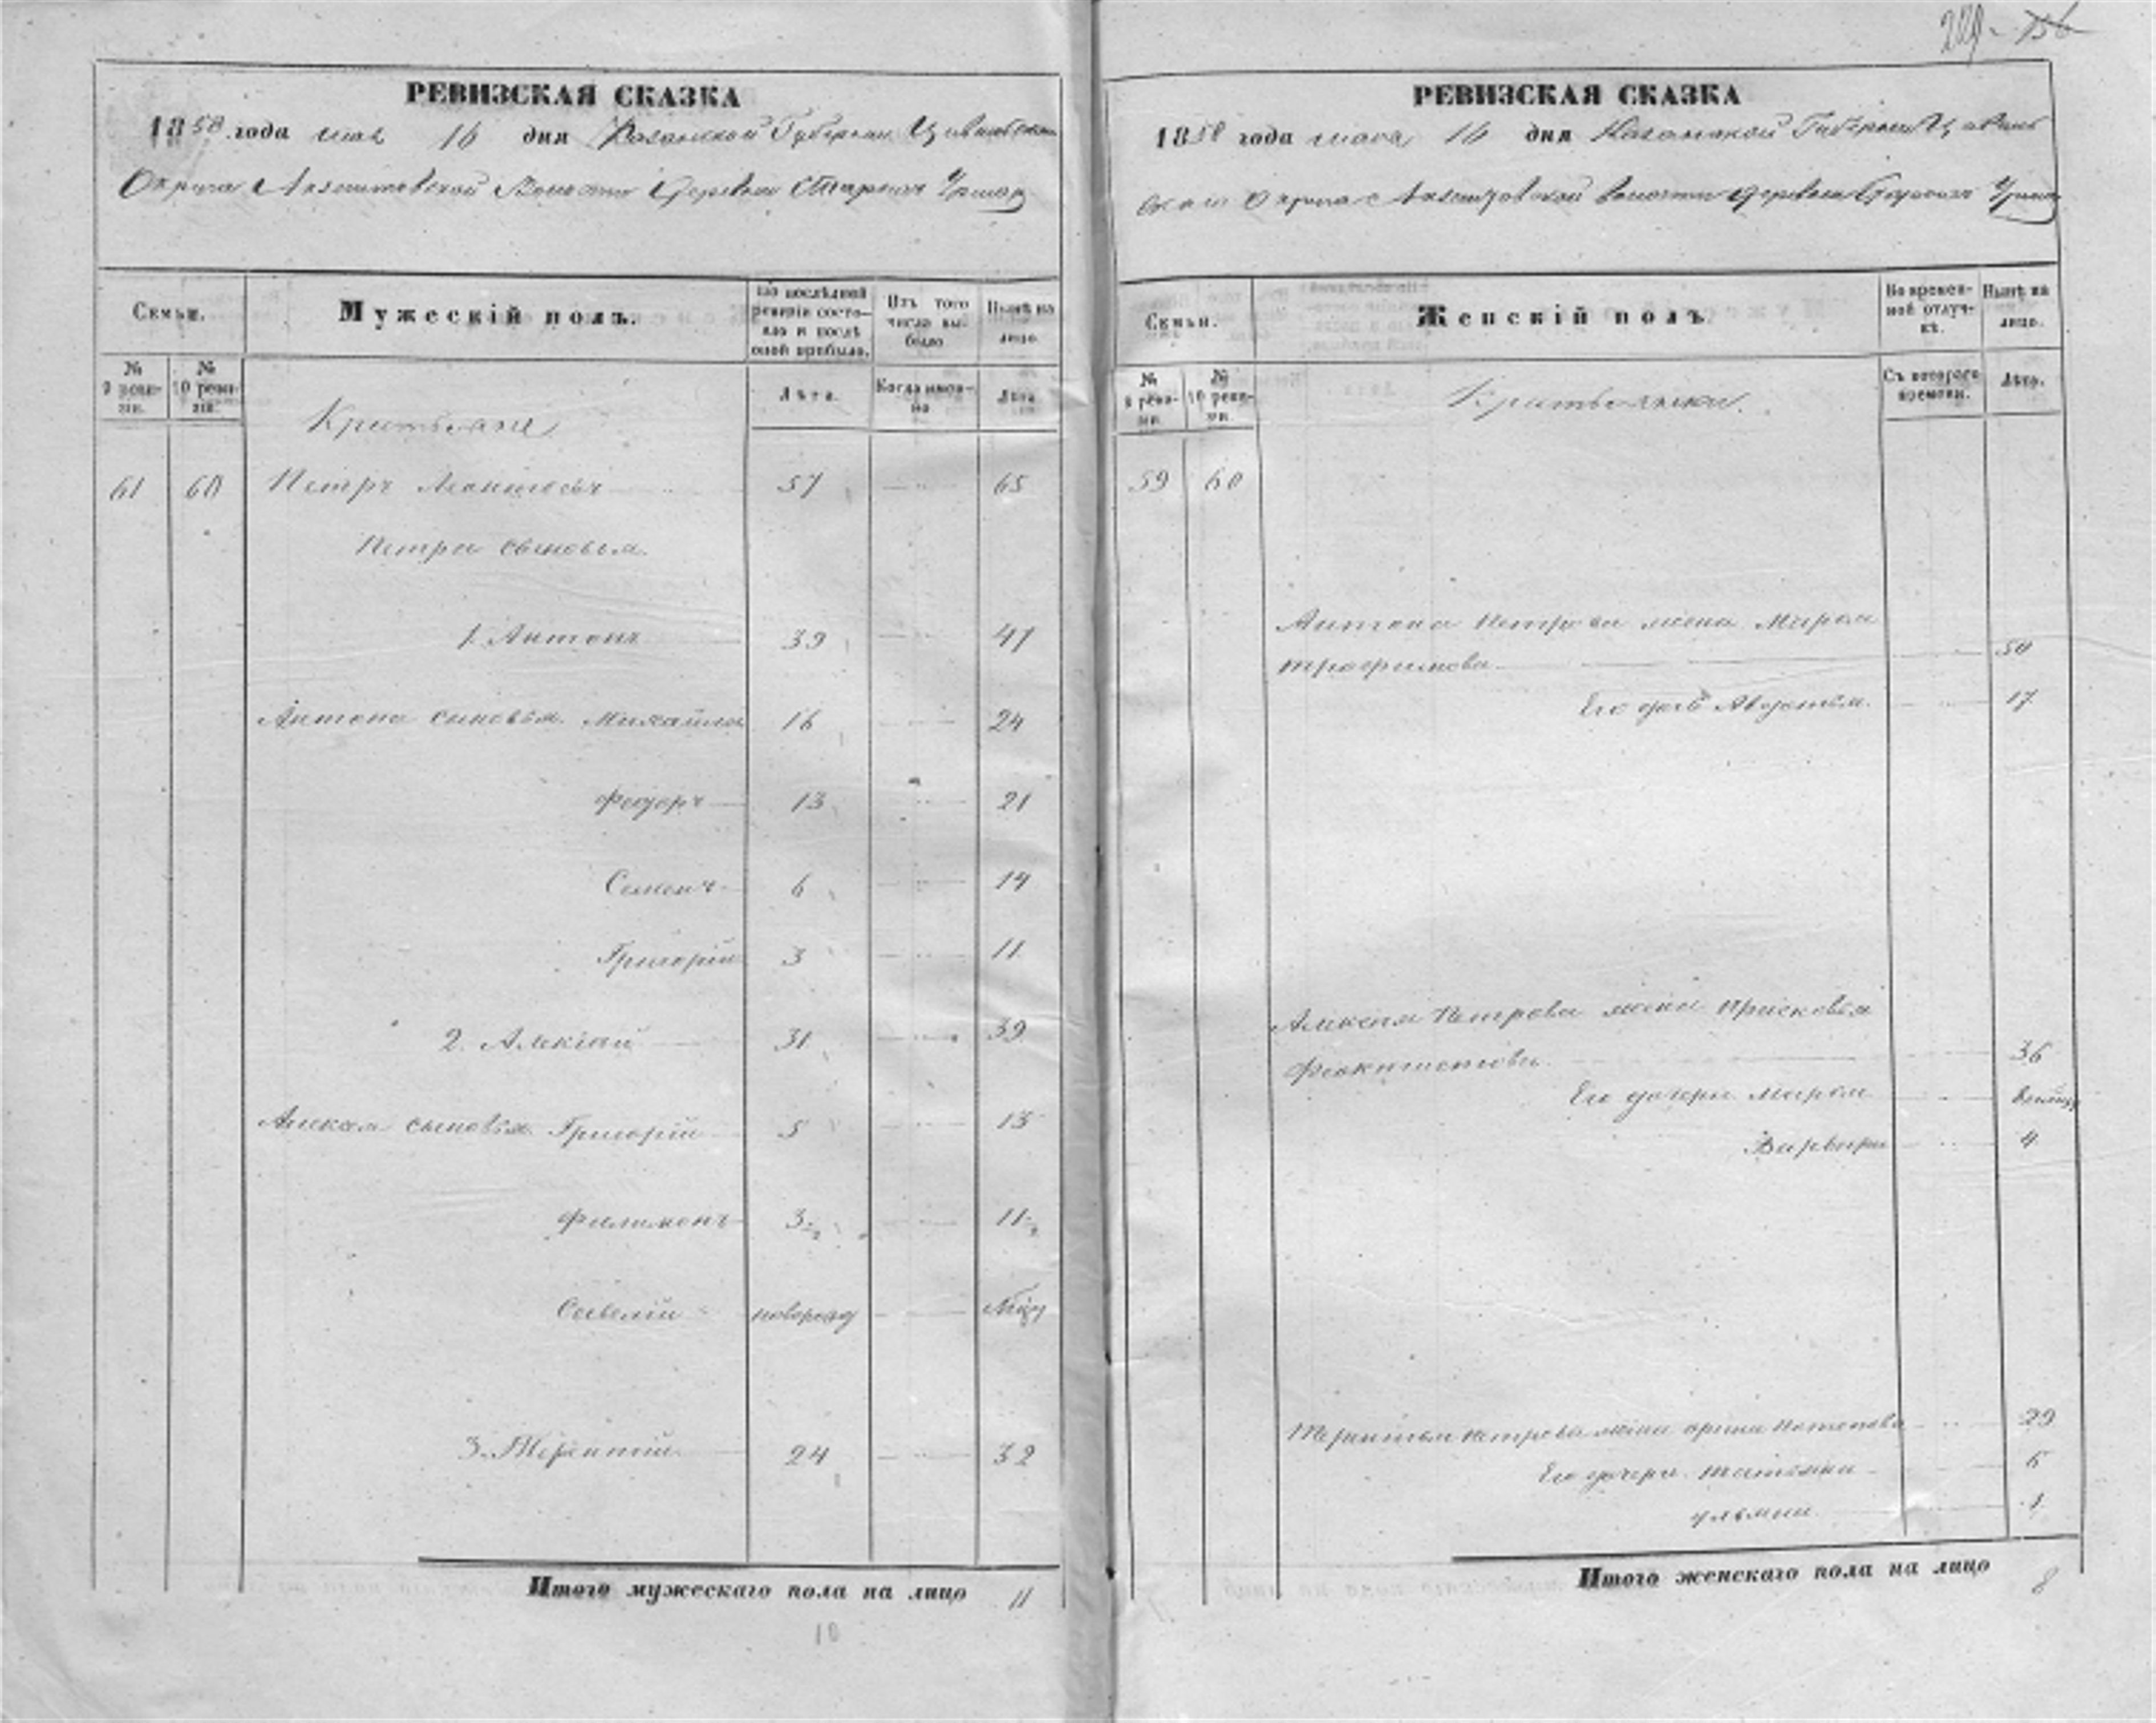 229. 156
РЕВИЗСКАЯ СКАЗКА
1858 года мая 16 дня Казанской Губернии Цивильскаго
Округа Акзегитовской Волости Деревни Старыхъ Урмар
Семьи.
Мужескій полъ.
По послѣдней ревизіи состояло и послѣ оной прибыло.
Изъ того числа выбыло
Нынѣ на лицо
№ 9 ревизіи.
№ 10 ревизіи.
Лѣта.
Когда именно
Лѣта
Крестьяне
61 60 Петръ Леонтьевъ 57 65
Петра сыновья
1. Антонъ 39 47
Антона сыновья Михайла 16 24
Федоръ 13 21
Семенъ 6 14
Григорій 3 11
2. Алексѣй 31 39
Алексея сыновья Григорій 5 13
Филимонъ 3½ 11½
Савелій новорожд
3. Терентій 24 32
Итого мужескаго пола на лицо 11
10
РЕВИЗСКАЯ СКАЗКА
1858 года маса 16 дня Казанской Губерніи Цивиль
скаго Округа Акзегитовской волости деревни Старыхъ Урмар
Семьи.
Женскій полъ
Во временной отлучкѣ.
Нынѣ на лицо.
№ 9 ревизіи.
№ 10 ревизіи.
Съ котораго времени.
Лѣта.
Крестьянки.
59 60
Антона Петрова жена Марья
трофимова 50
Его дочь Авдотья 17
Алексея Петрова жена Прасковья
Феоктистова 36
Его дочери Марья
Варвара 4
Терентья петрова жена арина потапова 29
Его дочери татьяна 5
ульяна 1
Итого женскаго пола на лицо 8